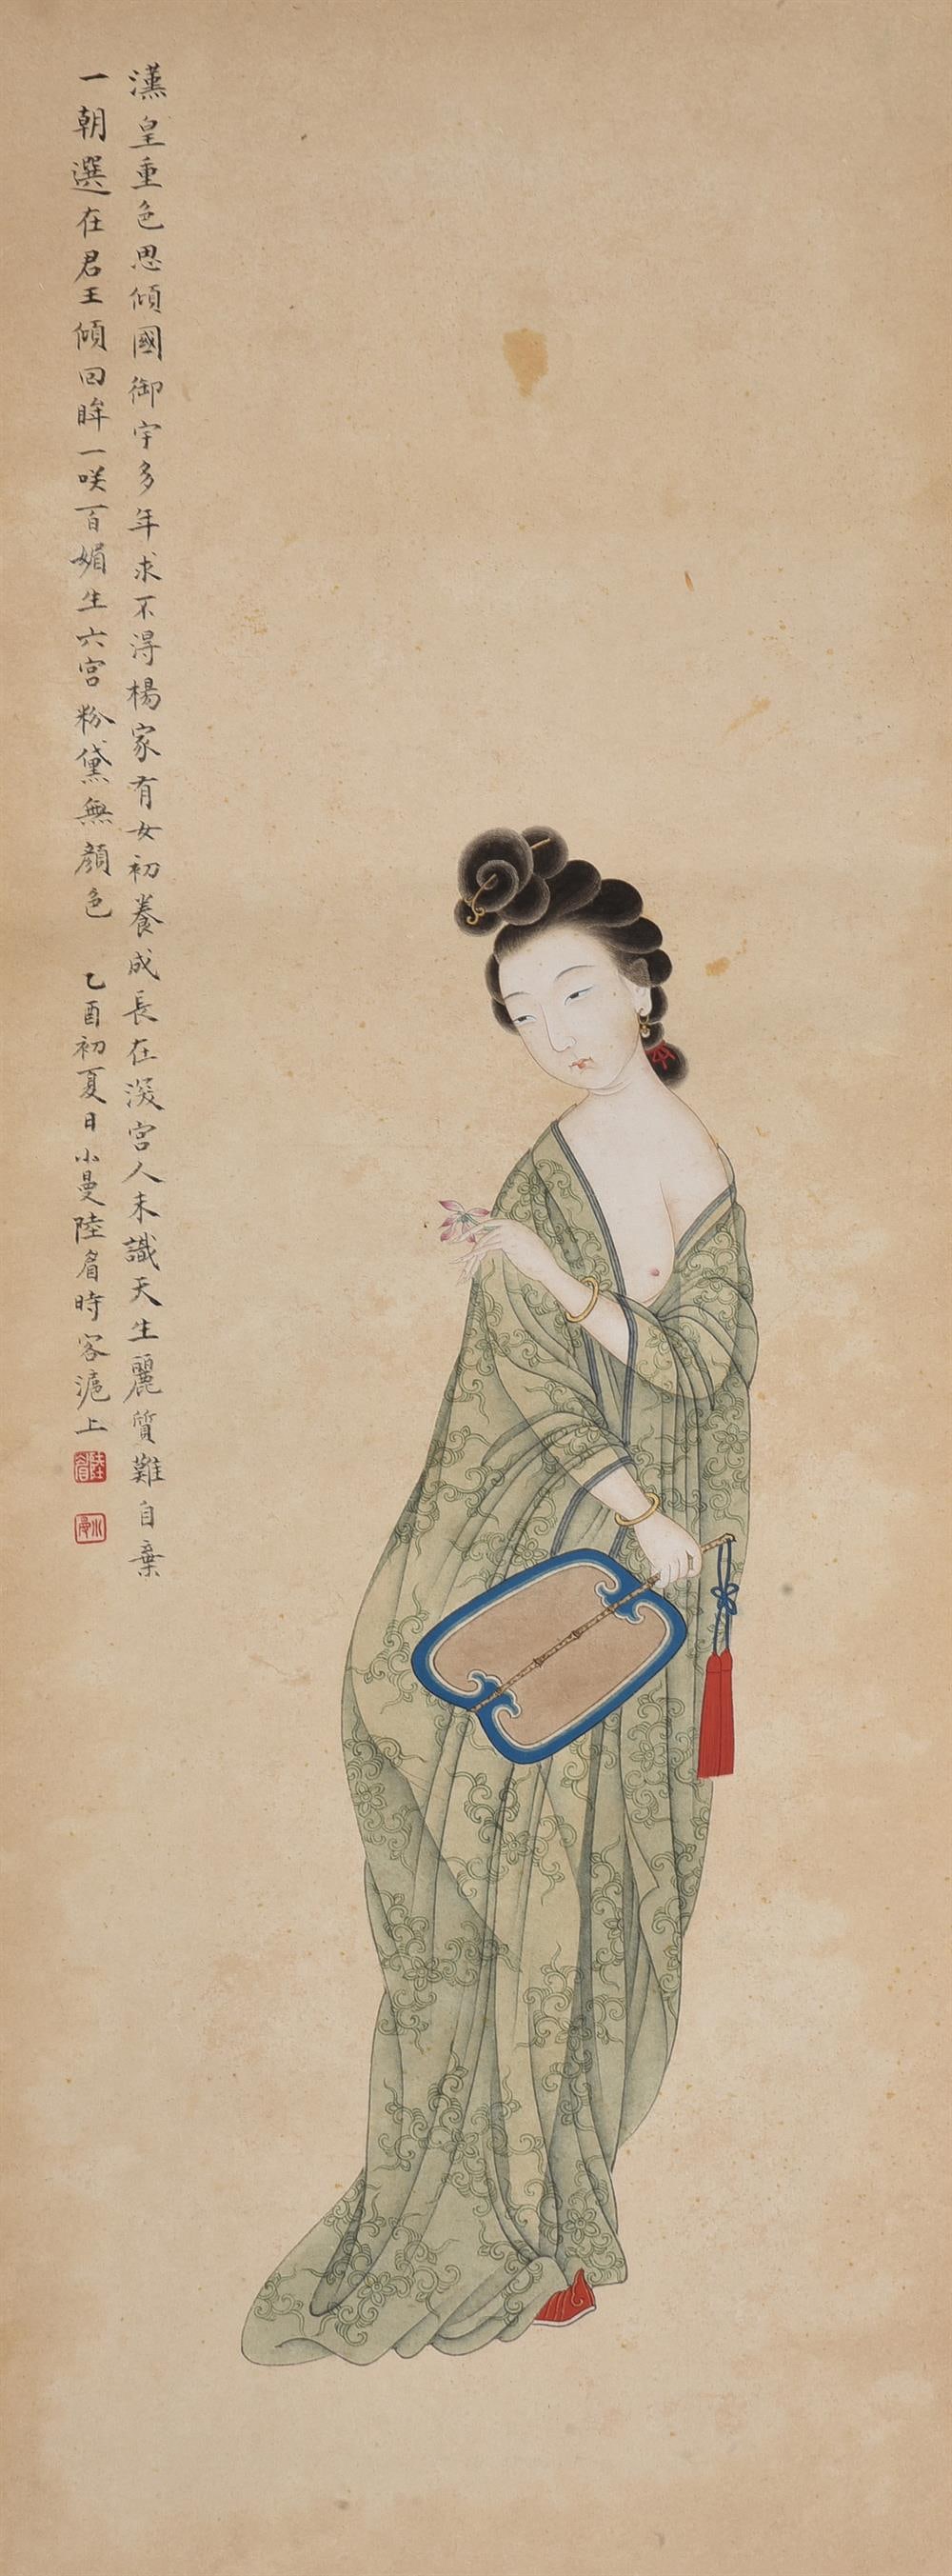 漢皇重色思傾國御宇多年求不得楊家有女初養成長在深宮人未識天生麗質難自棄
一朝選在君王傾回眸一咲百媚生六宮粉黛無顏色 乙酉初夏日小曼陸眉時客滬上
陸眉
小曼